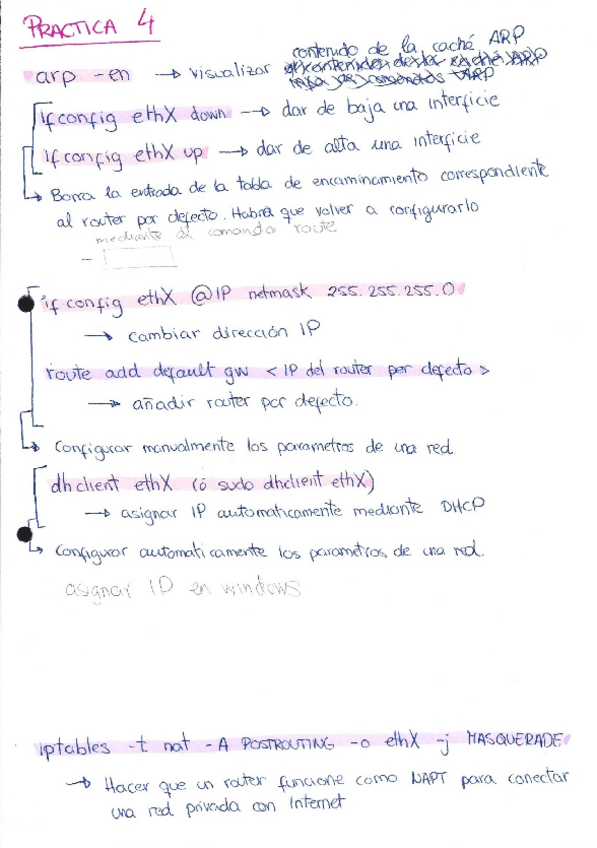 PRACTICA 4
arp -en → visualizar contenido de la caché ARP
ifconfig ethX down → dar de baja una interficie
ifconfig ethX up → dar de alta una interficie
→ Borra la entrada de la tabla de encaminamiento correspondiente
al router por defecto. Habrá que volver a configurarlo
mediante el comando route
-
ifconfig ethX @IP netmask 255.255.255.0
→ cambiar dirección IP
route add default gw < IP del router por defecto >
→ añadir router por defecto.
→ Configurar manualmente los parametros de una red.
dhclient ethX (ó sudo dhclient ethX)
→ asignar IP automaticamente mediante DHCP
→ Configurar automaticamente los parametros de una red.
asignar IP en windows
iptables -t nat -A POSTROUTING -o ethX -j MASQUERADE
→ Hacer que un router funcione como NAPT para conectar
una red privada con Internet